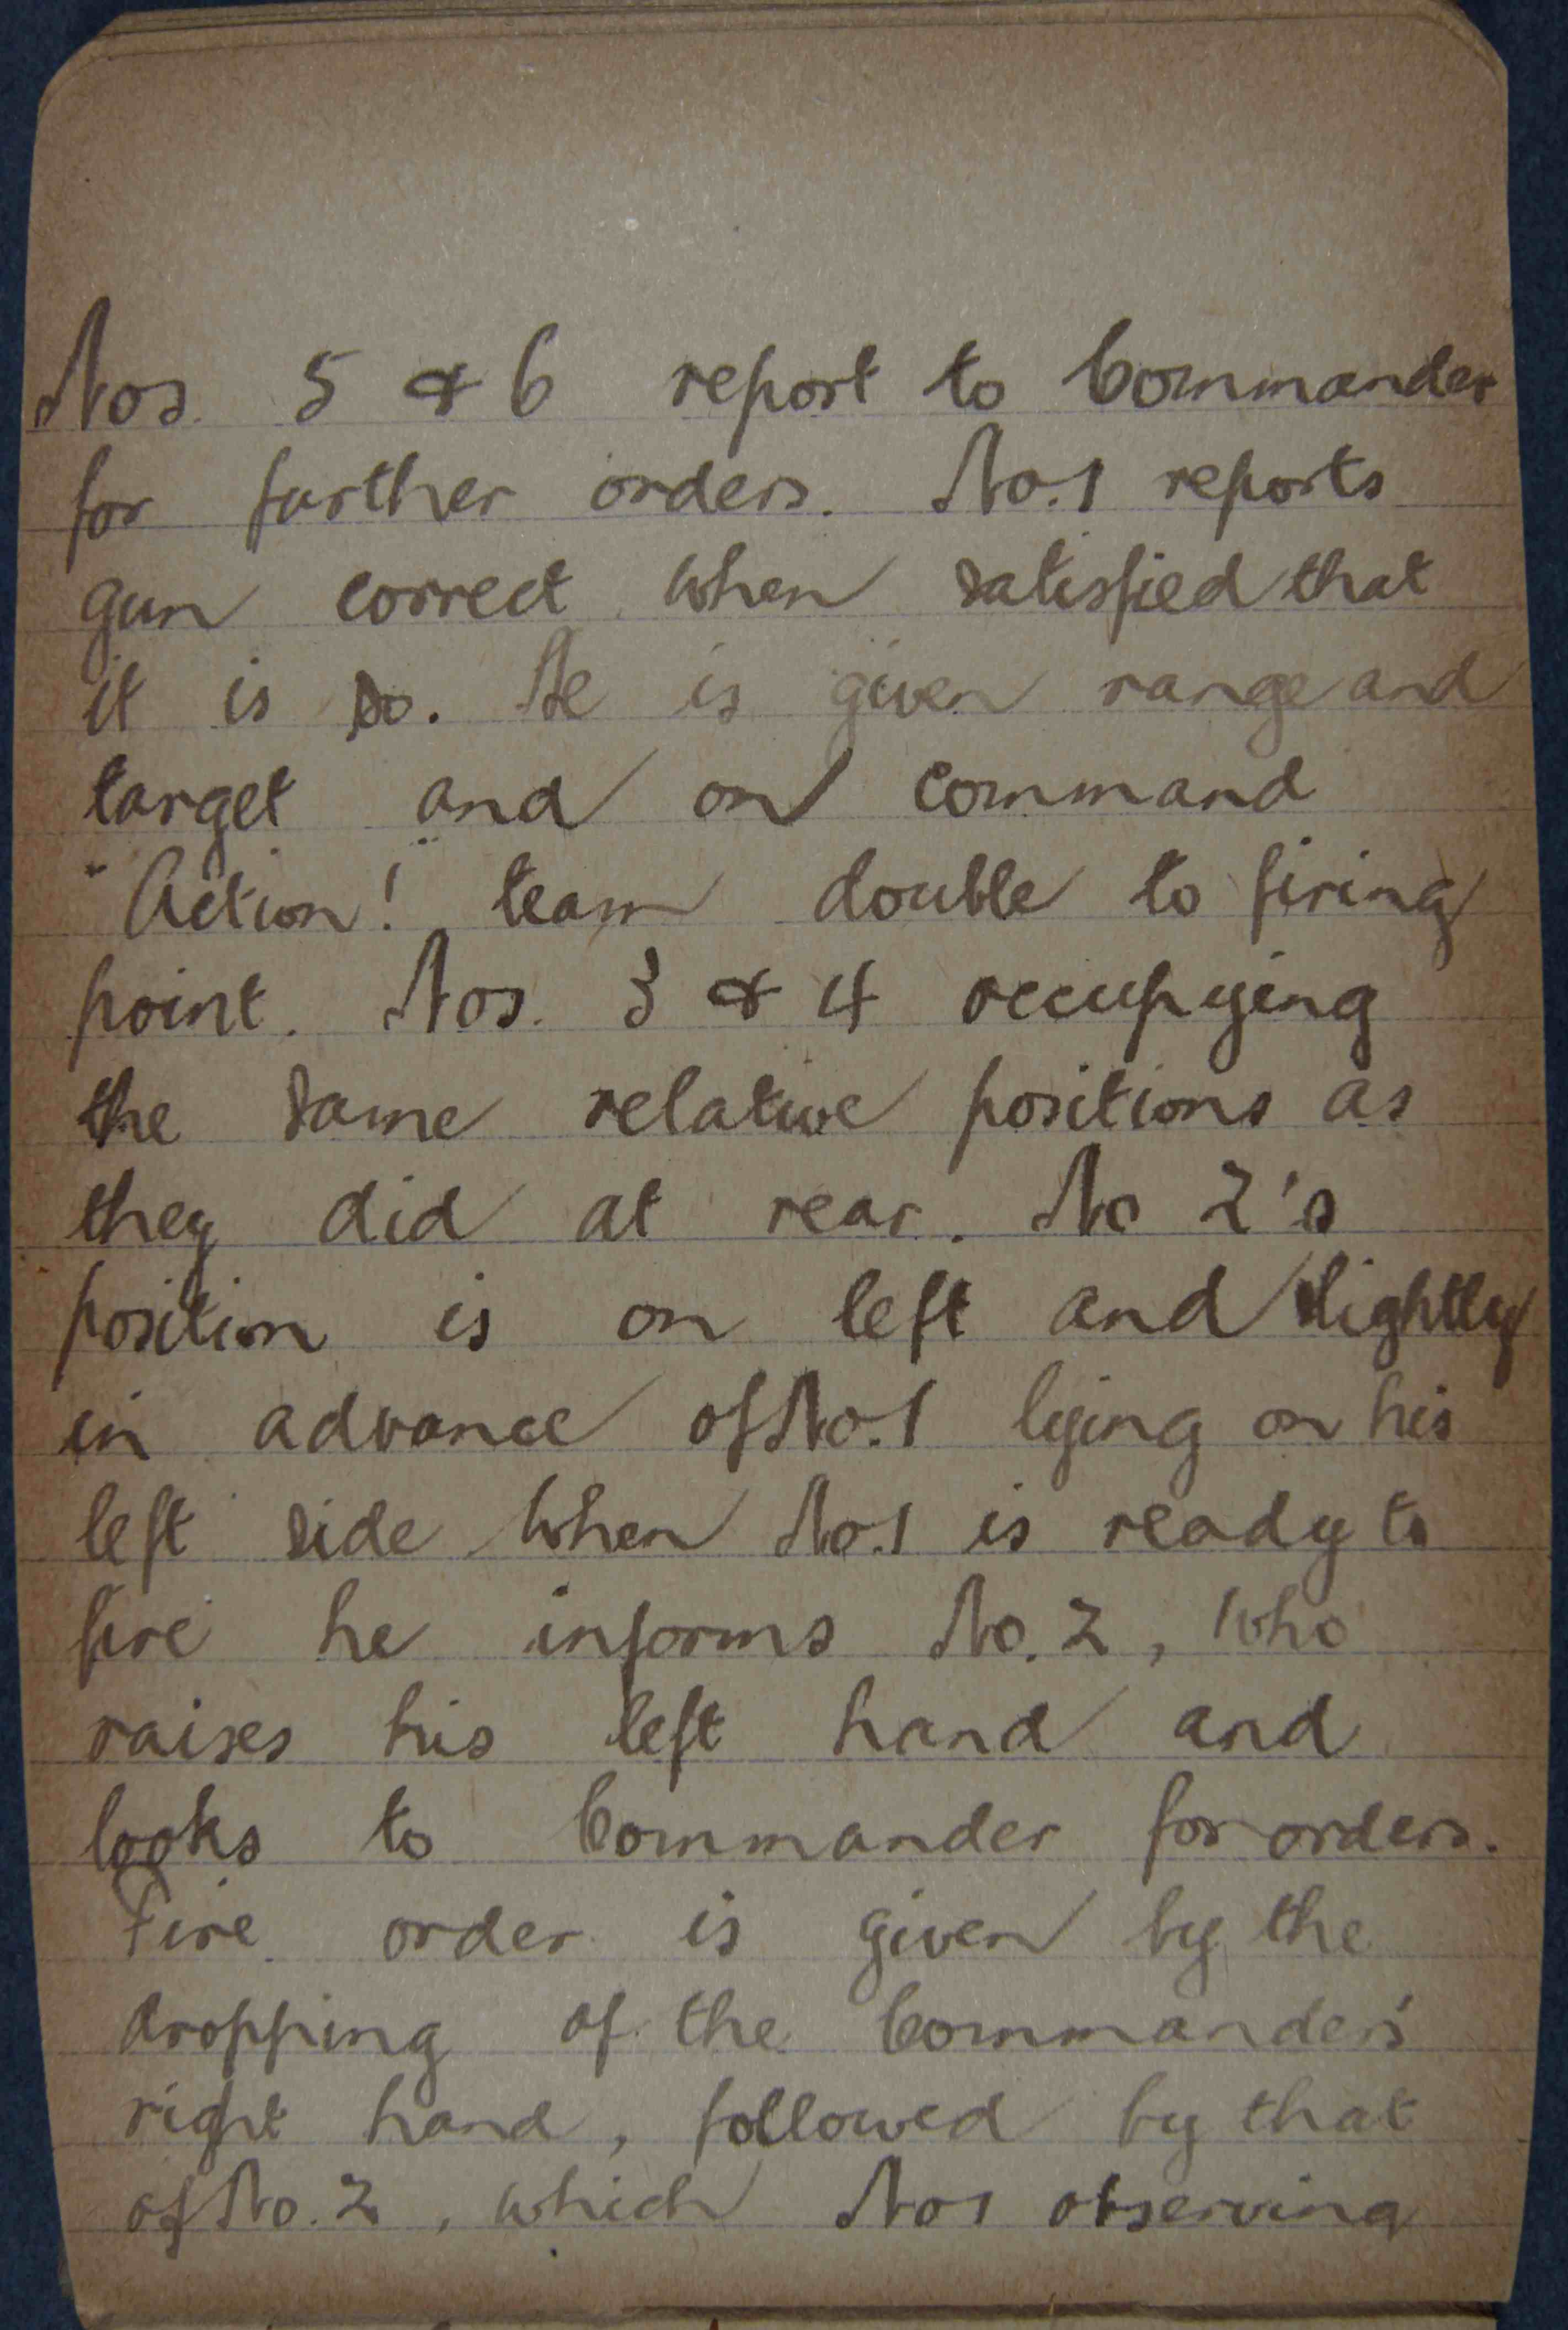 Nos. 5 & 6 report to Commander
for further orders. No.1 reports
gun correct when satisfied that
it is so. He is given range and
target and on command
"Action!" team double to firing
point. Nos. 3 & 4 occupying
the same relative positions as
they did at rear. No 2's
position is on left and slightly
in advance of No.1 lying on his
left side when No.1 is ready to
fire he informs No.2, who
raises his left hand and
looks to Commander for orders.
Fire order is given by the
dropping of the Commander's
right hand, followed by that
of No.2, which No 1 observing